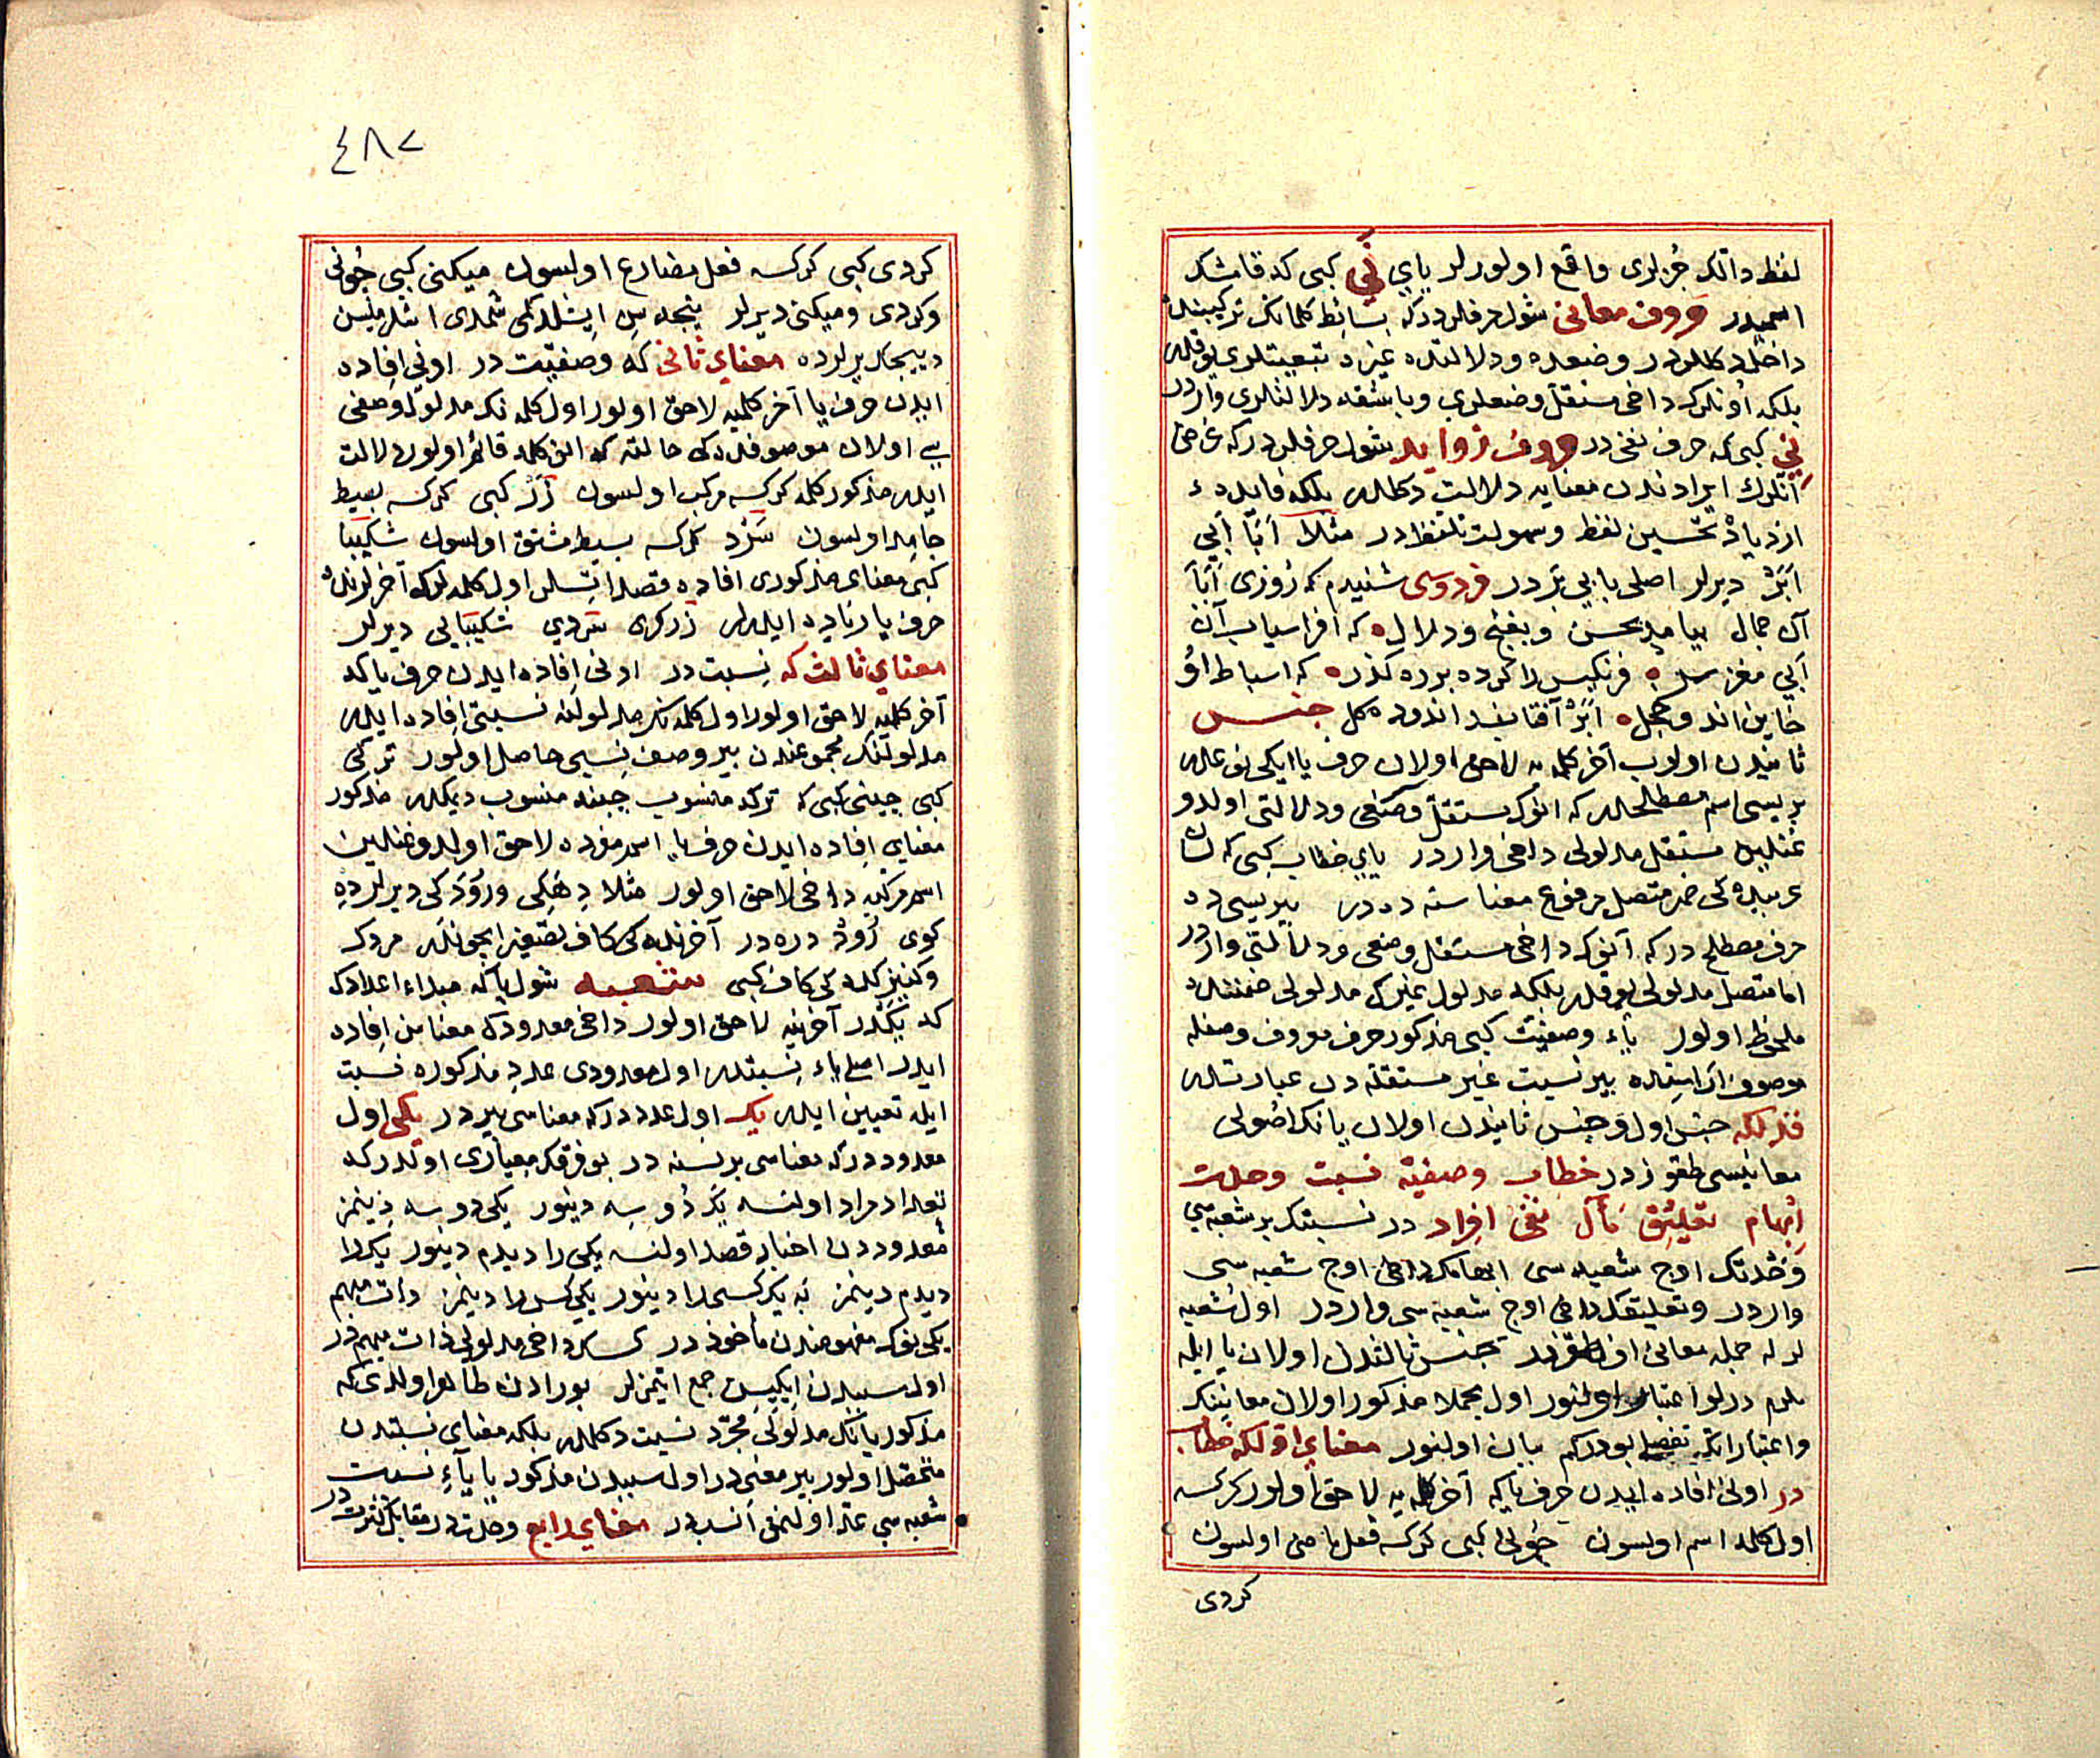 لفظدر انک جزلری واقع اولورلر یای نَی کبی که قامشک
اسمیدر حروف معانی شول حرفلردرکه بسائط کلمانک ترکیبندن
داخل دکللردر وضعده ودلالتده غیره تبعیتلری یوقدر
بلکه اونلرک داخی مستقل وضعلری وباشقه دلالتلری واردر
نی کبی که حرف نفی در حروف زواید شول حرفلردرکه غرض
آنلرک ایرادندن معنایه دلالت دکلدر بلکه فایده
ازدیاد تحسین لفظ وسهولت تلفظدر مثلا اَبَا اَبی
اَبَرْ دیرلر اصلی با بی بر در فردوسی شنیدم که روزی اَبَا
آن جمال بیامد بحسن وبغنج ودلال که افراسیاب آن
اَبی مغز سر فرنکیس را کرده برده کذر که اسباط او
خاین اند وخجل اَبَرْ آفتابند اندوده کل جنس
ثانیدن اولوب آخر کلمه یه لاحق اولان حرف یا ایکی نوعدر
بریسی اسم مصطلحدر که انوک مستقل وضعی ودلالتی اولدوغی
مستقل مدلولی داخی واردر یای خطاب کبی که لسان
عربیده کی ضمیر متصل مرفوع معناسنه در بریسی ده
حرف مصطلح در که آنوک داخی مستقل وضعی ودلالتی واردر
اما متصل مدلولی یوقدر بلکه مدلول غیرک مدلولی ضمننده
ملحوظ اولور یاء وصفیت کبی مذکور حرف موصوف وصفله
موصوف اراسنده بیر نسبت غیر مستقله دن عبارتدر
فذلکه جنس اول وجنس ثانیدن اولان یانک اصولی
معانیسی طقوزدر خطاب وصفیة نسبت وحدت
اِبهام تعلیق مآل نفی افراد در نسبتک بر شعبه سی
وحدتک اوج شعبه سی ابهامک داخی اوج شعبه سی
واردر وتعلیقک داخی اوج شعبه سی واردر اول شعبه
لرله جمله معانی اون طقوزدر جنس ثالثدن اولان یا ایله
اول مجملا مذکور اولان معانینک
واعتباراتک تفصیلی بودرکم بیان اولنور معنای اوّل که خطاب
در اونی افاده ایدن حرف یا که آخر کلمه یه لاحق اولور کرکسه
اول کلمه اسم اولسون خوبی کبی کرکسه فعل ماضی اولسون
کردی
٤٨٢
کردی کبی کرکسه فعل مضارع اولسون میکنی کبی خوبی
وکردی ومیکنی دیرلر شمدی
دییجک یرلرده معنای ثانی که وصفیت در اونی افاده
ایدن حرف یا آخر کلمیه لاحق اولور اول کلمه نک مدلول وصفی
سی اولان موصوفده کی حالته که انک کله قائم اولور دلالت
ایدر مذکور کلمه کرکسه مرکب اولسون زَرْ کبی کرکسه بسیط
جامد اولسون سَرْد کرکسه بسیط مشتق اولسون شکیبا
کبی معنای مذکوری افاده قصد اتسلر اول کلمه لرک آخرلرنده
حرف یا زیاده ایدرلر زرکری سردی شکیبایی دیرلر
معنای ثالث که نسبت در اونی افاده ایدن حرف یا که
آخر کلمیه لاحق اولور اول کلمه نک مدلولنه نسبتی افاده ایدر
مدلولنک مجموعندن بیر وصف نسبی حاصل اولور ترکی
کبی چینی کبی که ترکه منسوب چینه منسوب دیمکدر مذکور
معنای افاده ایدن حرف یا اسم مفرده لاحق اولدوغندین
اسم مرکبه داخی لاحق اولور مثلا دِهَکی ورُودَکی دیرلر دِه
کوی رُودْ دره در آخرنده کی کاف تصغیر ایچوندر مردک
وکنیزکده کی کاف کبی شعبه شول یا که مبداء اعدادک
که یَکْدر آخرینه لاحق اولور داخی معدودک معناسن افاده
ایدر اصلی یاء نسبتدر اول معدودی عدد مذکوره نسبت
ایله تعیین ایدر یک اول عدددرکه معناسی بیردر یکی اول
معدوددرکه معناسی بریسنه در بو فرقک معیاری اولدرکه
تعداد مراد اولنسه یک دو سه دینور یکی دو سه دینمز
معدوددن اخبار قصد اولنسه یکی را دیدم دینور یک را
دیدم دینمز نه یک کسی را دینور یکی کس را دینمز ذات مبهم
یکی نوک مفهومندن مأخوذدر کسک داخی مدلولی ذات مبهمدر
اول سببدن ایکیسن جمع ایتمزلر بورادن ظاهر اولدی که
مذکور یانک مدلولی مجرّد نسبت دکلدر بلکه معنای نسبتدن
متحصل اولور بیر معنی در اول سببدن مذکور یا یاءِ نسبت
شعبه سی عدّ اولنمق انسبدر معنای رابع وحدت در مقابل کثرت در